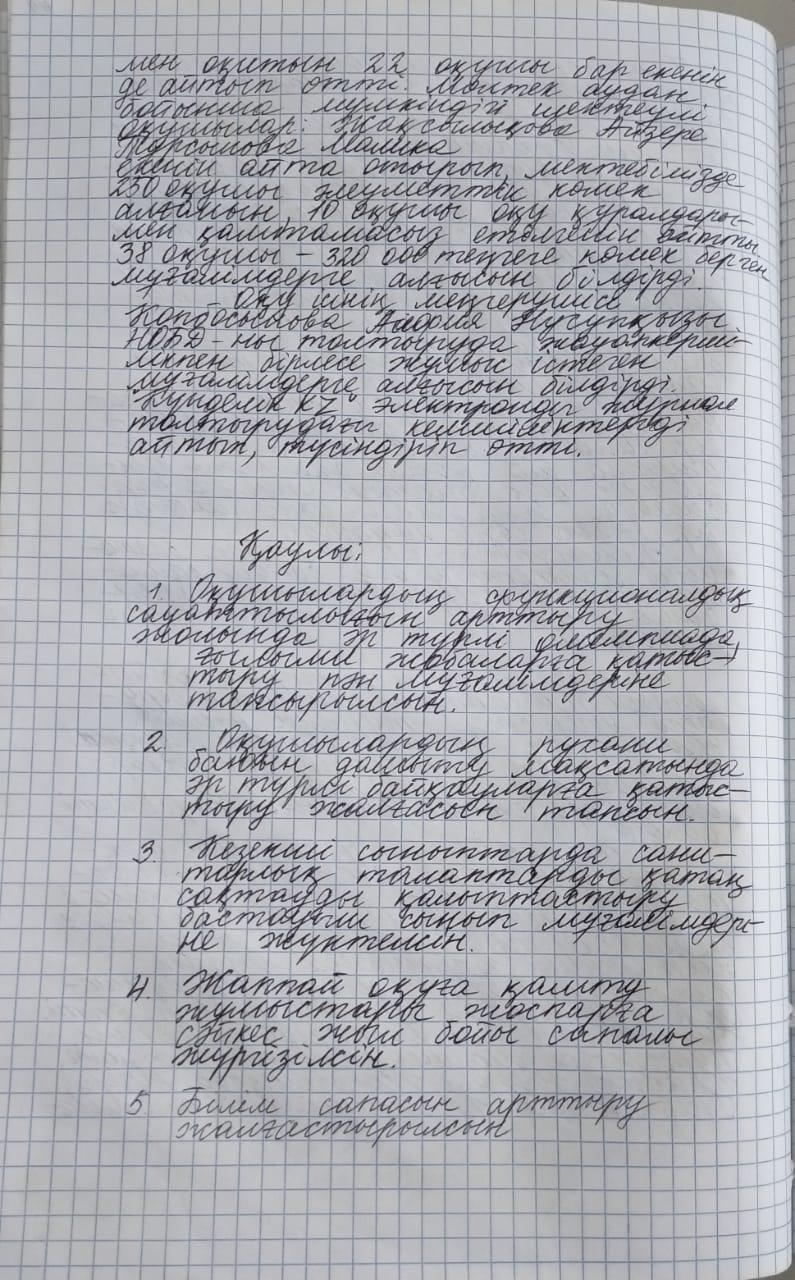 мен оқитын 22 оқушы бар екенін
де айтып өтті. Мөлтек аудан
бойынша мүмкіндігі шектеулі
оқушылар: Жақсылықова Айзере
Тұрсынова Малика
екенін айта отырып, мектебімізде
250 оқушы әлуметтік көмек
алғанын, 10 оқушы оқу құралдары-
мен қамтамасыз етілгенін айтты
38 оқушы – 320 000 теңгеге көмек берген
мұғалімдерге алғысын білдірді.
Оқу ісінің меңгерушісі
Копбосынова Нусупқызы
НОБД-ны толтыруда жауапкерші-
лікпен бірлесе жұмыс істеген
мұғалімдерге алғысын білдірді.
"Күнделік KZ" электронды журнал
толтырудағы кемшіліктерді
айтып, түсіндіріп өтті.
Қаулы:
1. Оқушылардың функционалдық
сауаттылығын арттыру
жолында әр түрлі олимпиада,
ғылыми жобаларға қатыс-
тыру пән мұғалімдеріне
тапсырылсын.
2. Оқушылардың рухани
баюын дамыту мақсатында
әр түрлі байқауларға қатыс-
тыру жалғасын тапсын.
3. Кезекші сыныптарда сани-
тарлық талаптарды қатаң
сақтауды қалыптастыру
бастауыш сынып мұғалімдері-
не жүктелсін.
4. Жаппай оқуға қамту
жұмыстары жоспарға
сәйкес жыл бойы сапалы
жүргізілсін.
5 Білім сапасын арттыру
жалғастырылсын